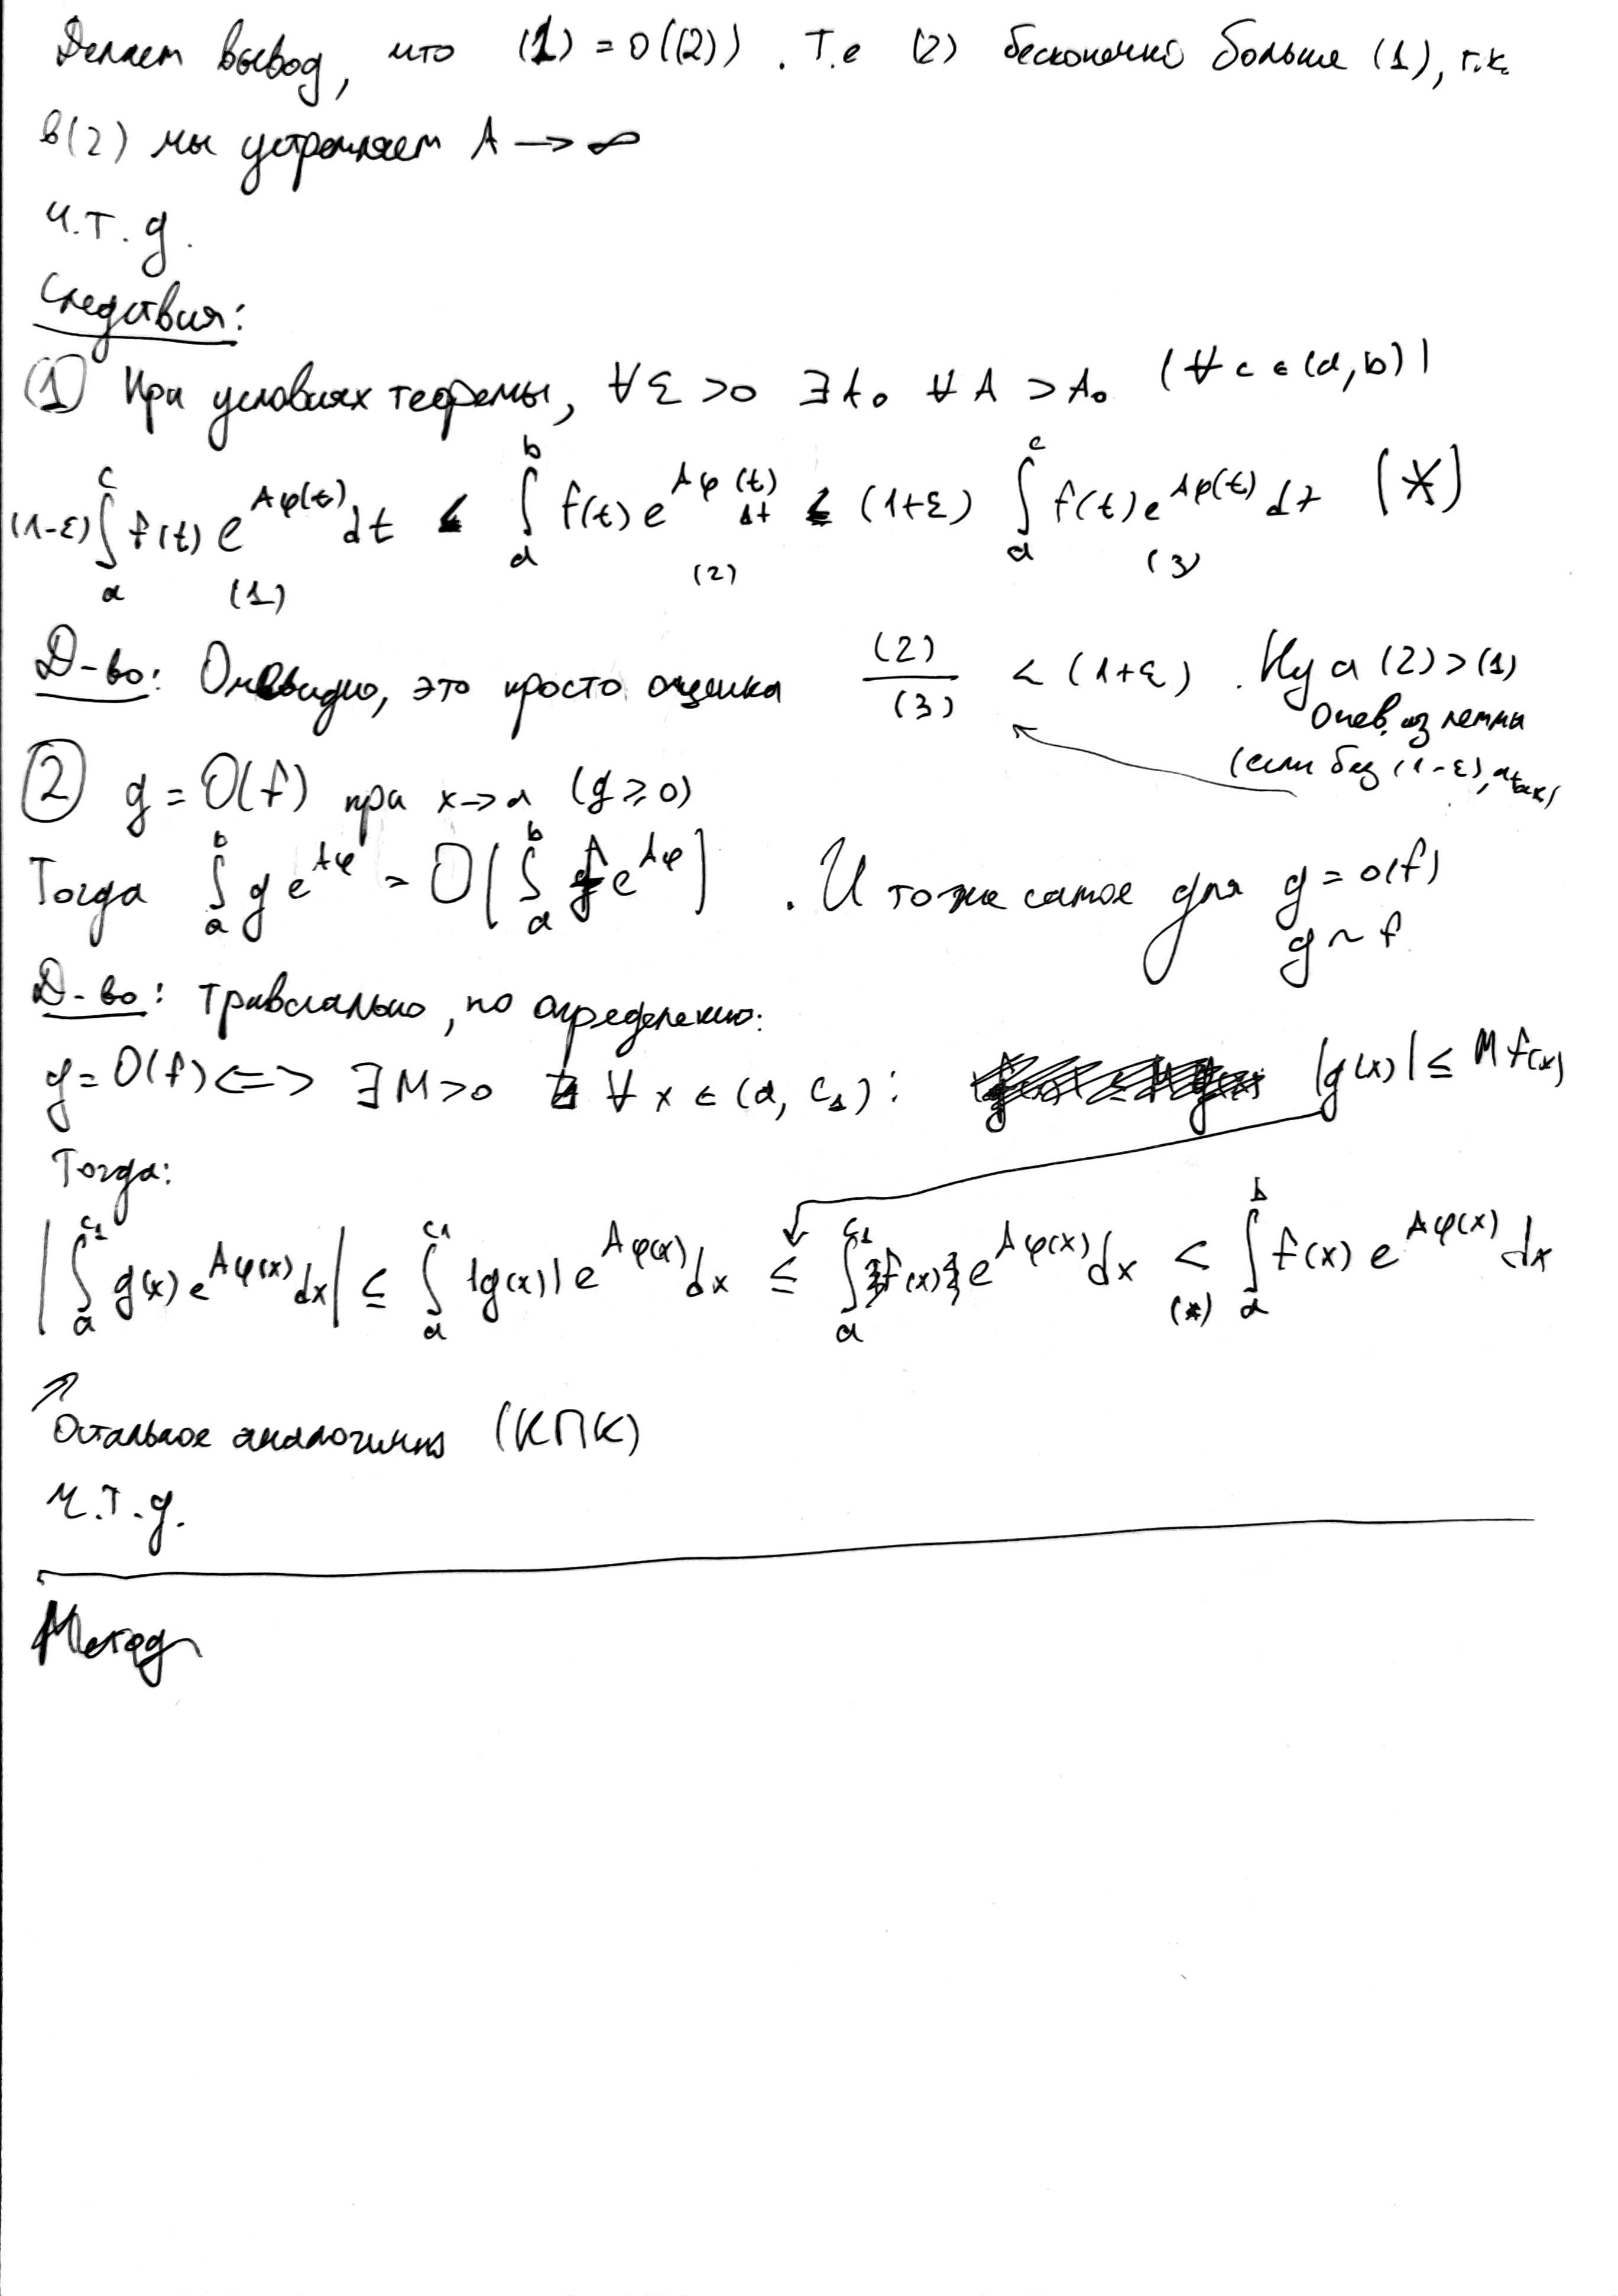 Делаем вывод, что (1) = o((2)). Т.е (2) бесконечно больше (1), т.к.
в (2) мы устремляем A → ∞
Ч.Т.д.
Следствия:
(1) При условиях теоремы, ∀ε > 0 ∃A₀ ∀A > A₀ (∀c ∈ (a, b))
(1-ε) ∫ₐᶜ f(t) e^{Aφ(t)} dt < ∫ₐᵇ f(t) e^{Aφ(t)} dt < (1+ε) ∫ₐᶜ f(t) e^{Aφ(t)} dt (*)
(1) (2) (3)
Д-во: Очевидно, это просто оценка (2)/(3) < (1+ε). Ну а (2) > (1)
Очев. из леммы
(если без (1-ε), а так)
(2) g = O(f) при x→a (g ≥ 0)
Тогда ∫ₐᵇ g e^{Aφ} = O(∫ₐᵇ f e^{Aφ}). И тоже самое для g = o(f)
g ~ f
Д-во: тривиально, по определению:
g = O(f) <=> ∃M > 0 ∀x ∈ (a, c₁): |g(x)| ≤ M f(x)
Тогда:
|∫ₐ^{c₁} g(x) e^{Aφ(x)} dx| ≤ ∫ₐ^{c₁} |g(x)| e^{Aφ(x)} dx ≤ ∫ₐ^{c₁} f(x) e^{Aφ(x)} dx < ∫ₐᵇ f(x) e^{Aφ(x)} dx
(*)
Остальное аналогично (КПК)
Ч.Т.д.
Метод